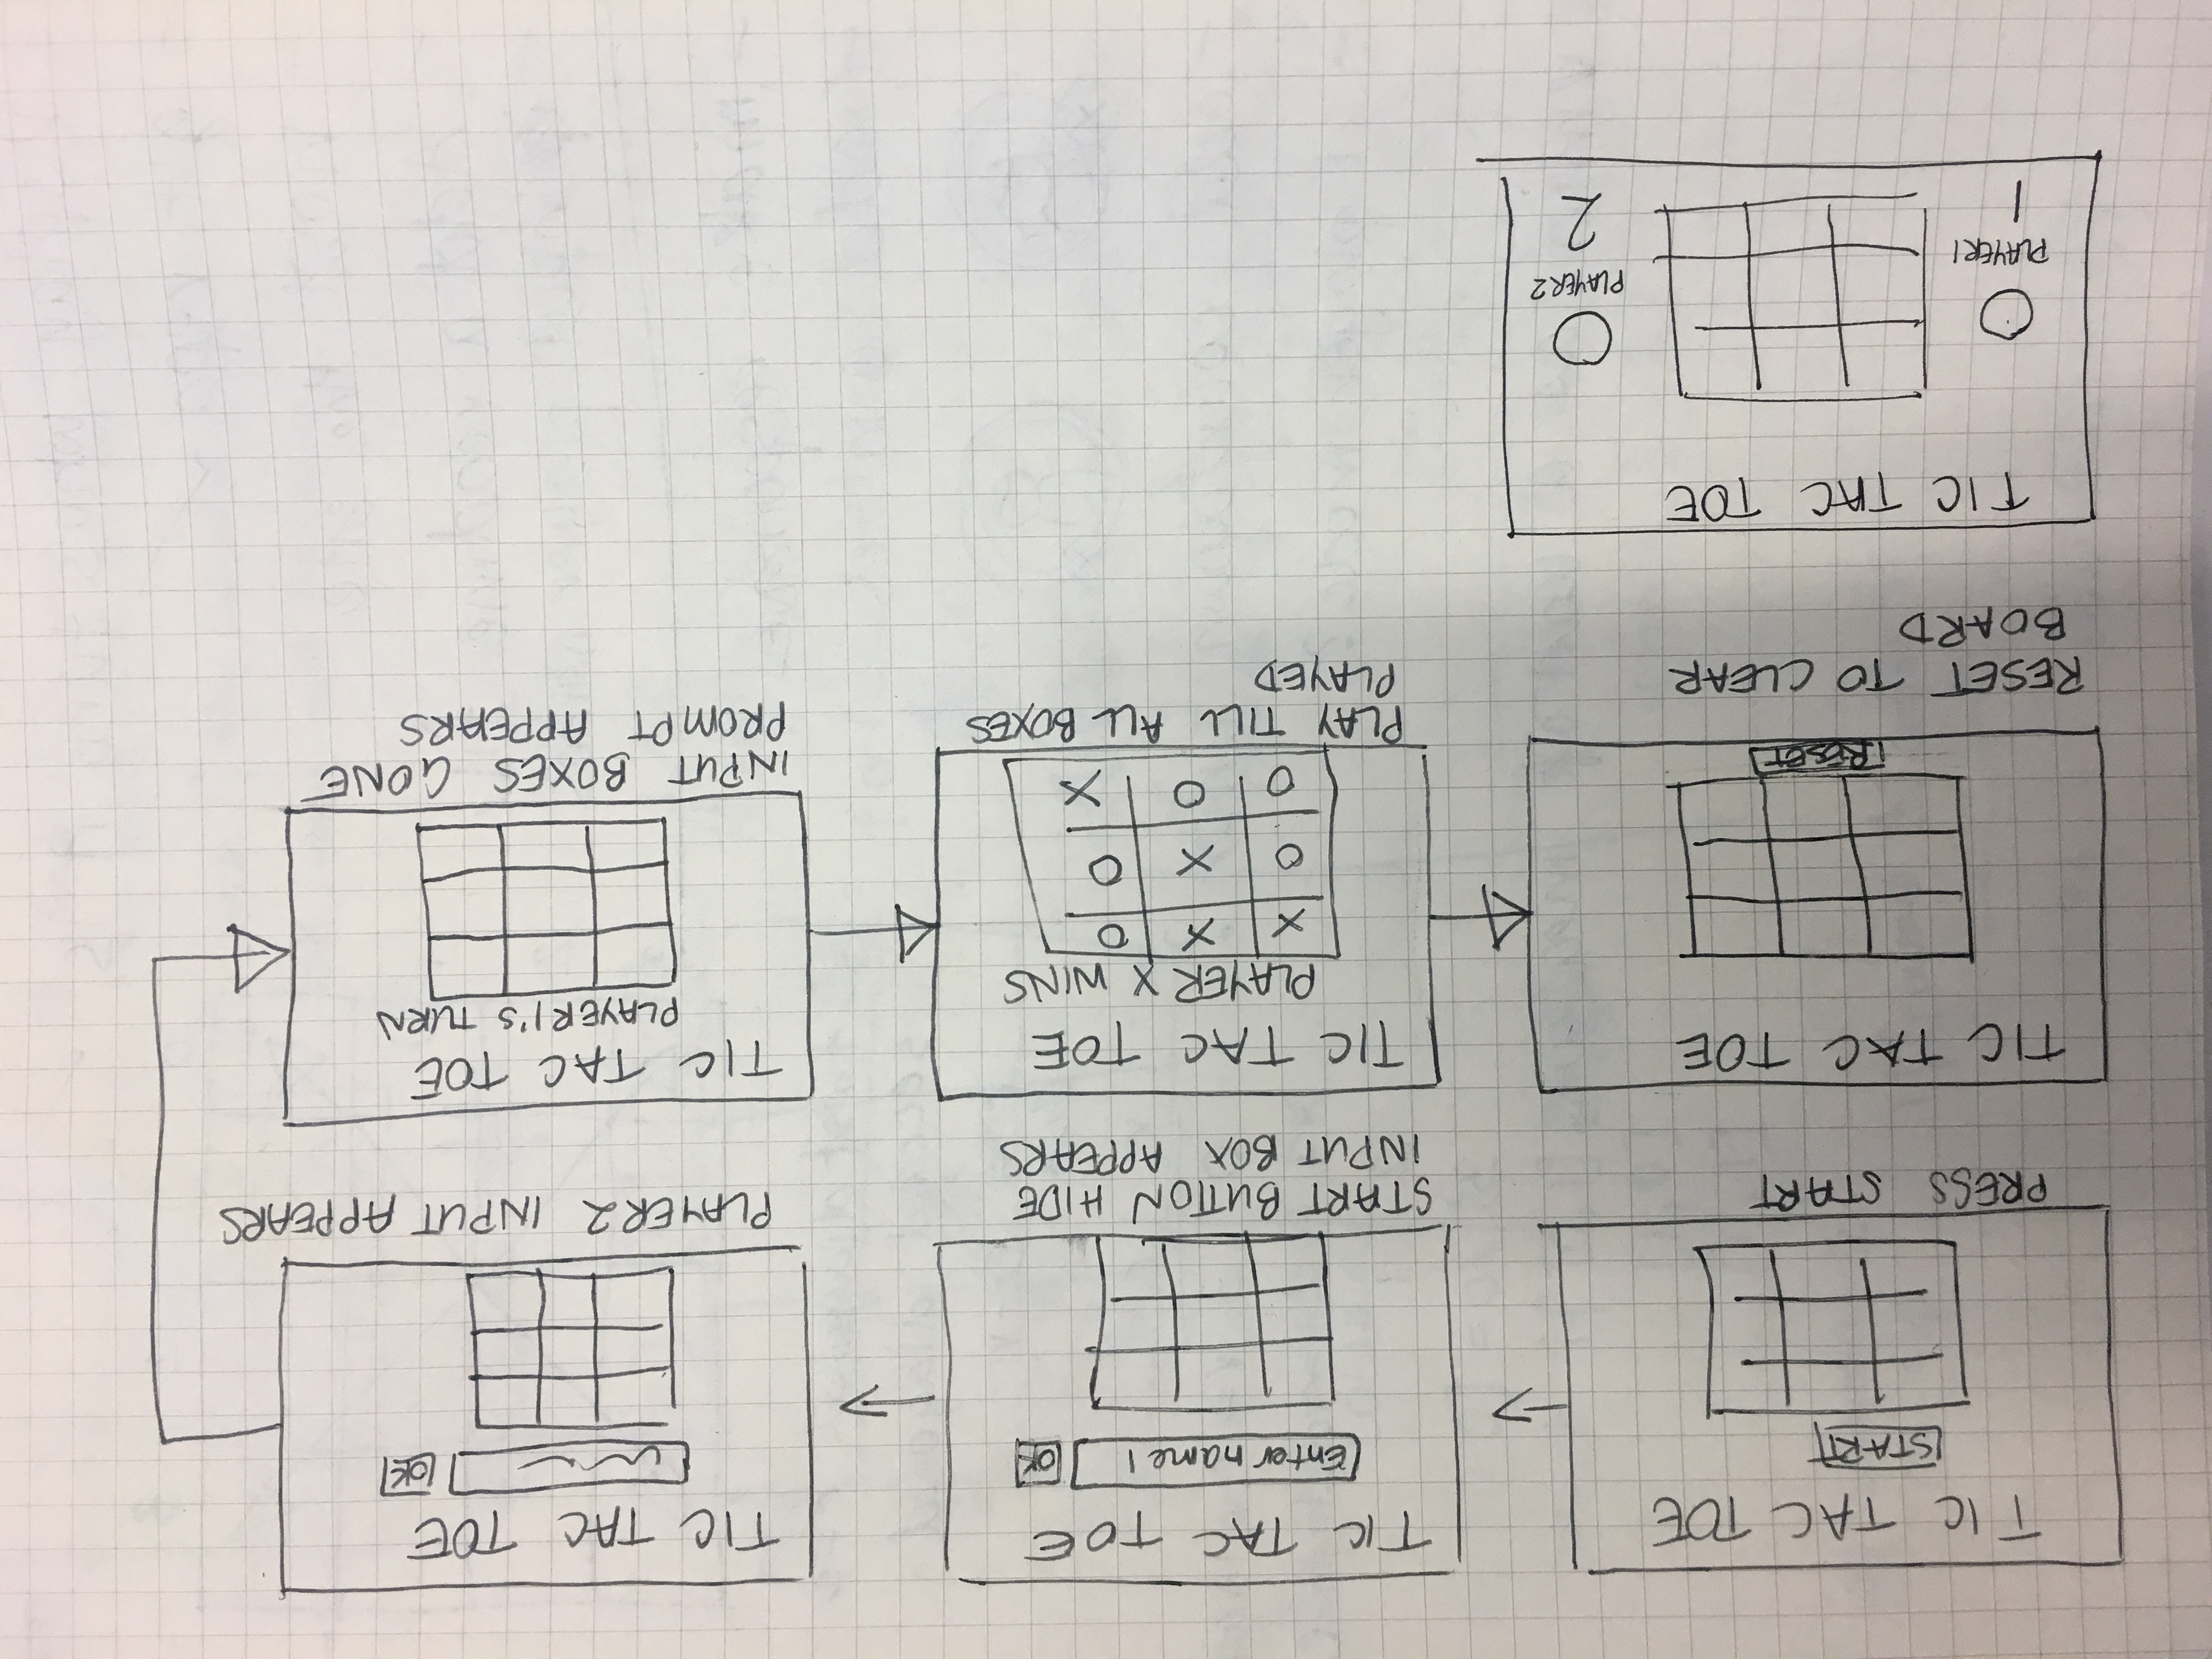 TIC TAC TOE
START
PRESS START
TIC TAC TOE
Enter name 1
OK
START BUTTON HIDE
INPUT BOX APPEARS
TIC TAC TOE
OK
PLAYER 2 INPUT APPEARS
TIC TAC TOE
PLAYER 1'S TURN
INPUT BOXES GONE
PROMPT APPEARS
TIC TAC TOE
PLAYER X WINS
X X O
O X O
O O X
PLAY TILL ALL BOXES
PLAYED
TIC TAC TOE
RESET
RESET TO CLEAR
BOARD
TIC TAC TOE
PLAYER 1
1
PLAYER 2
2